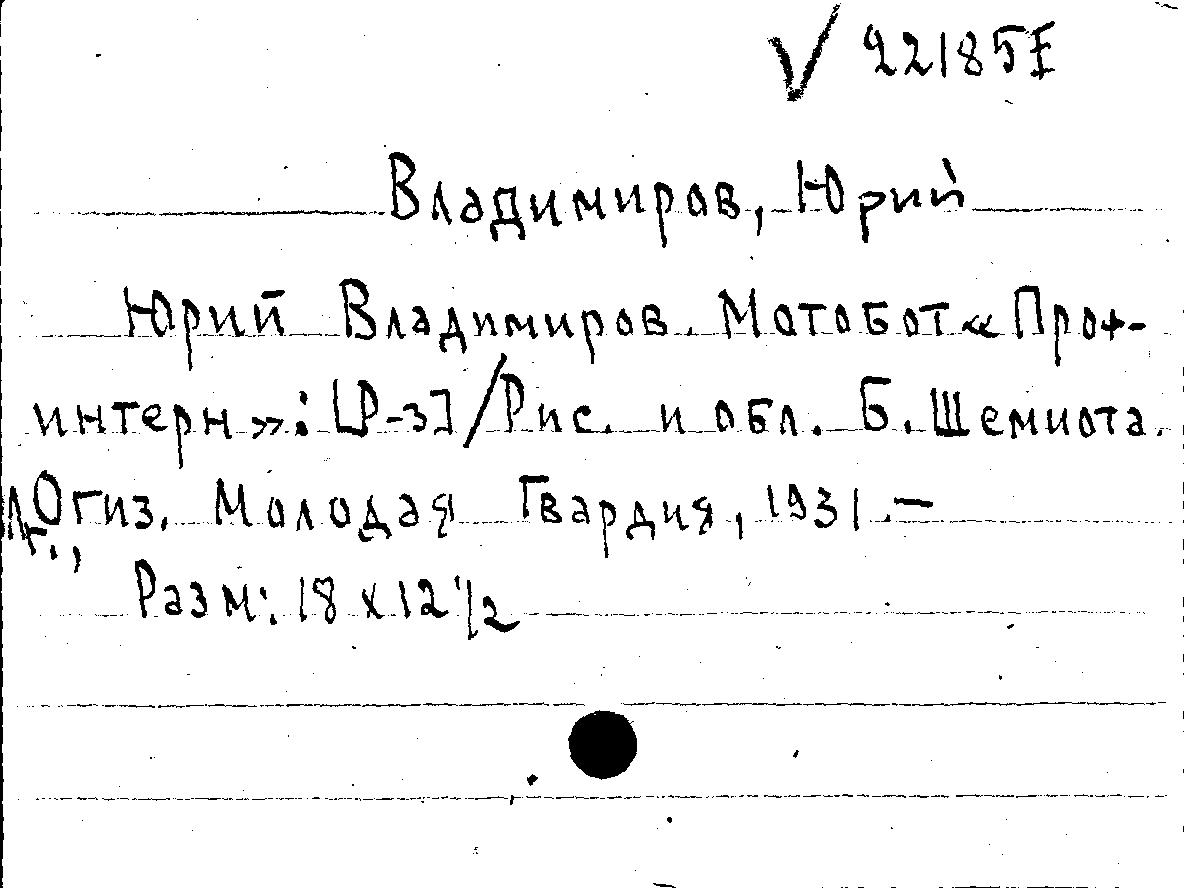 √ 22185 I
Владимиров, Юрий
Юрий Владимиров. Мотобот «Проф-
интерн»: [Р-з] / Рис. и обл. Б. Шемиота.
Огиз. Молодая Гвардия, 1931. —
Разм: 18 x 12 1/2